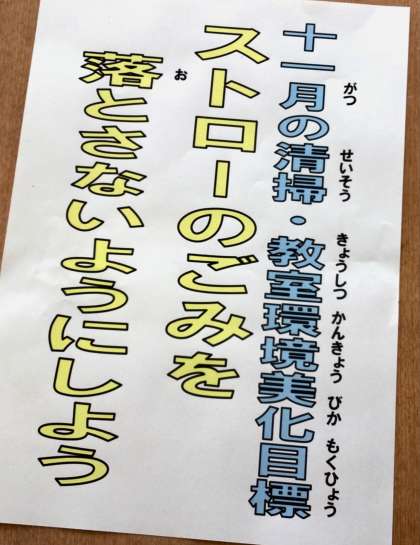 十一月の清掃・教室環境美化目標
がつ せいそう きょうしつ かんきょう びか もくひょう
ストローのごみを
落とさないようにしよう
お